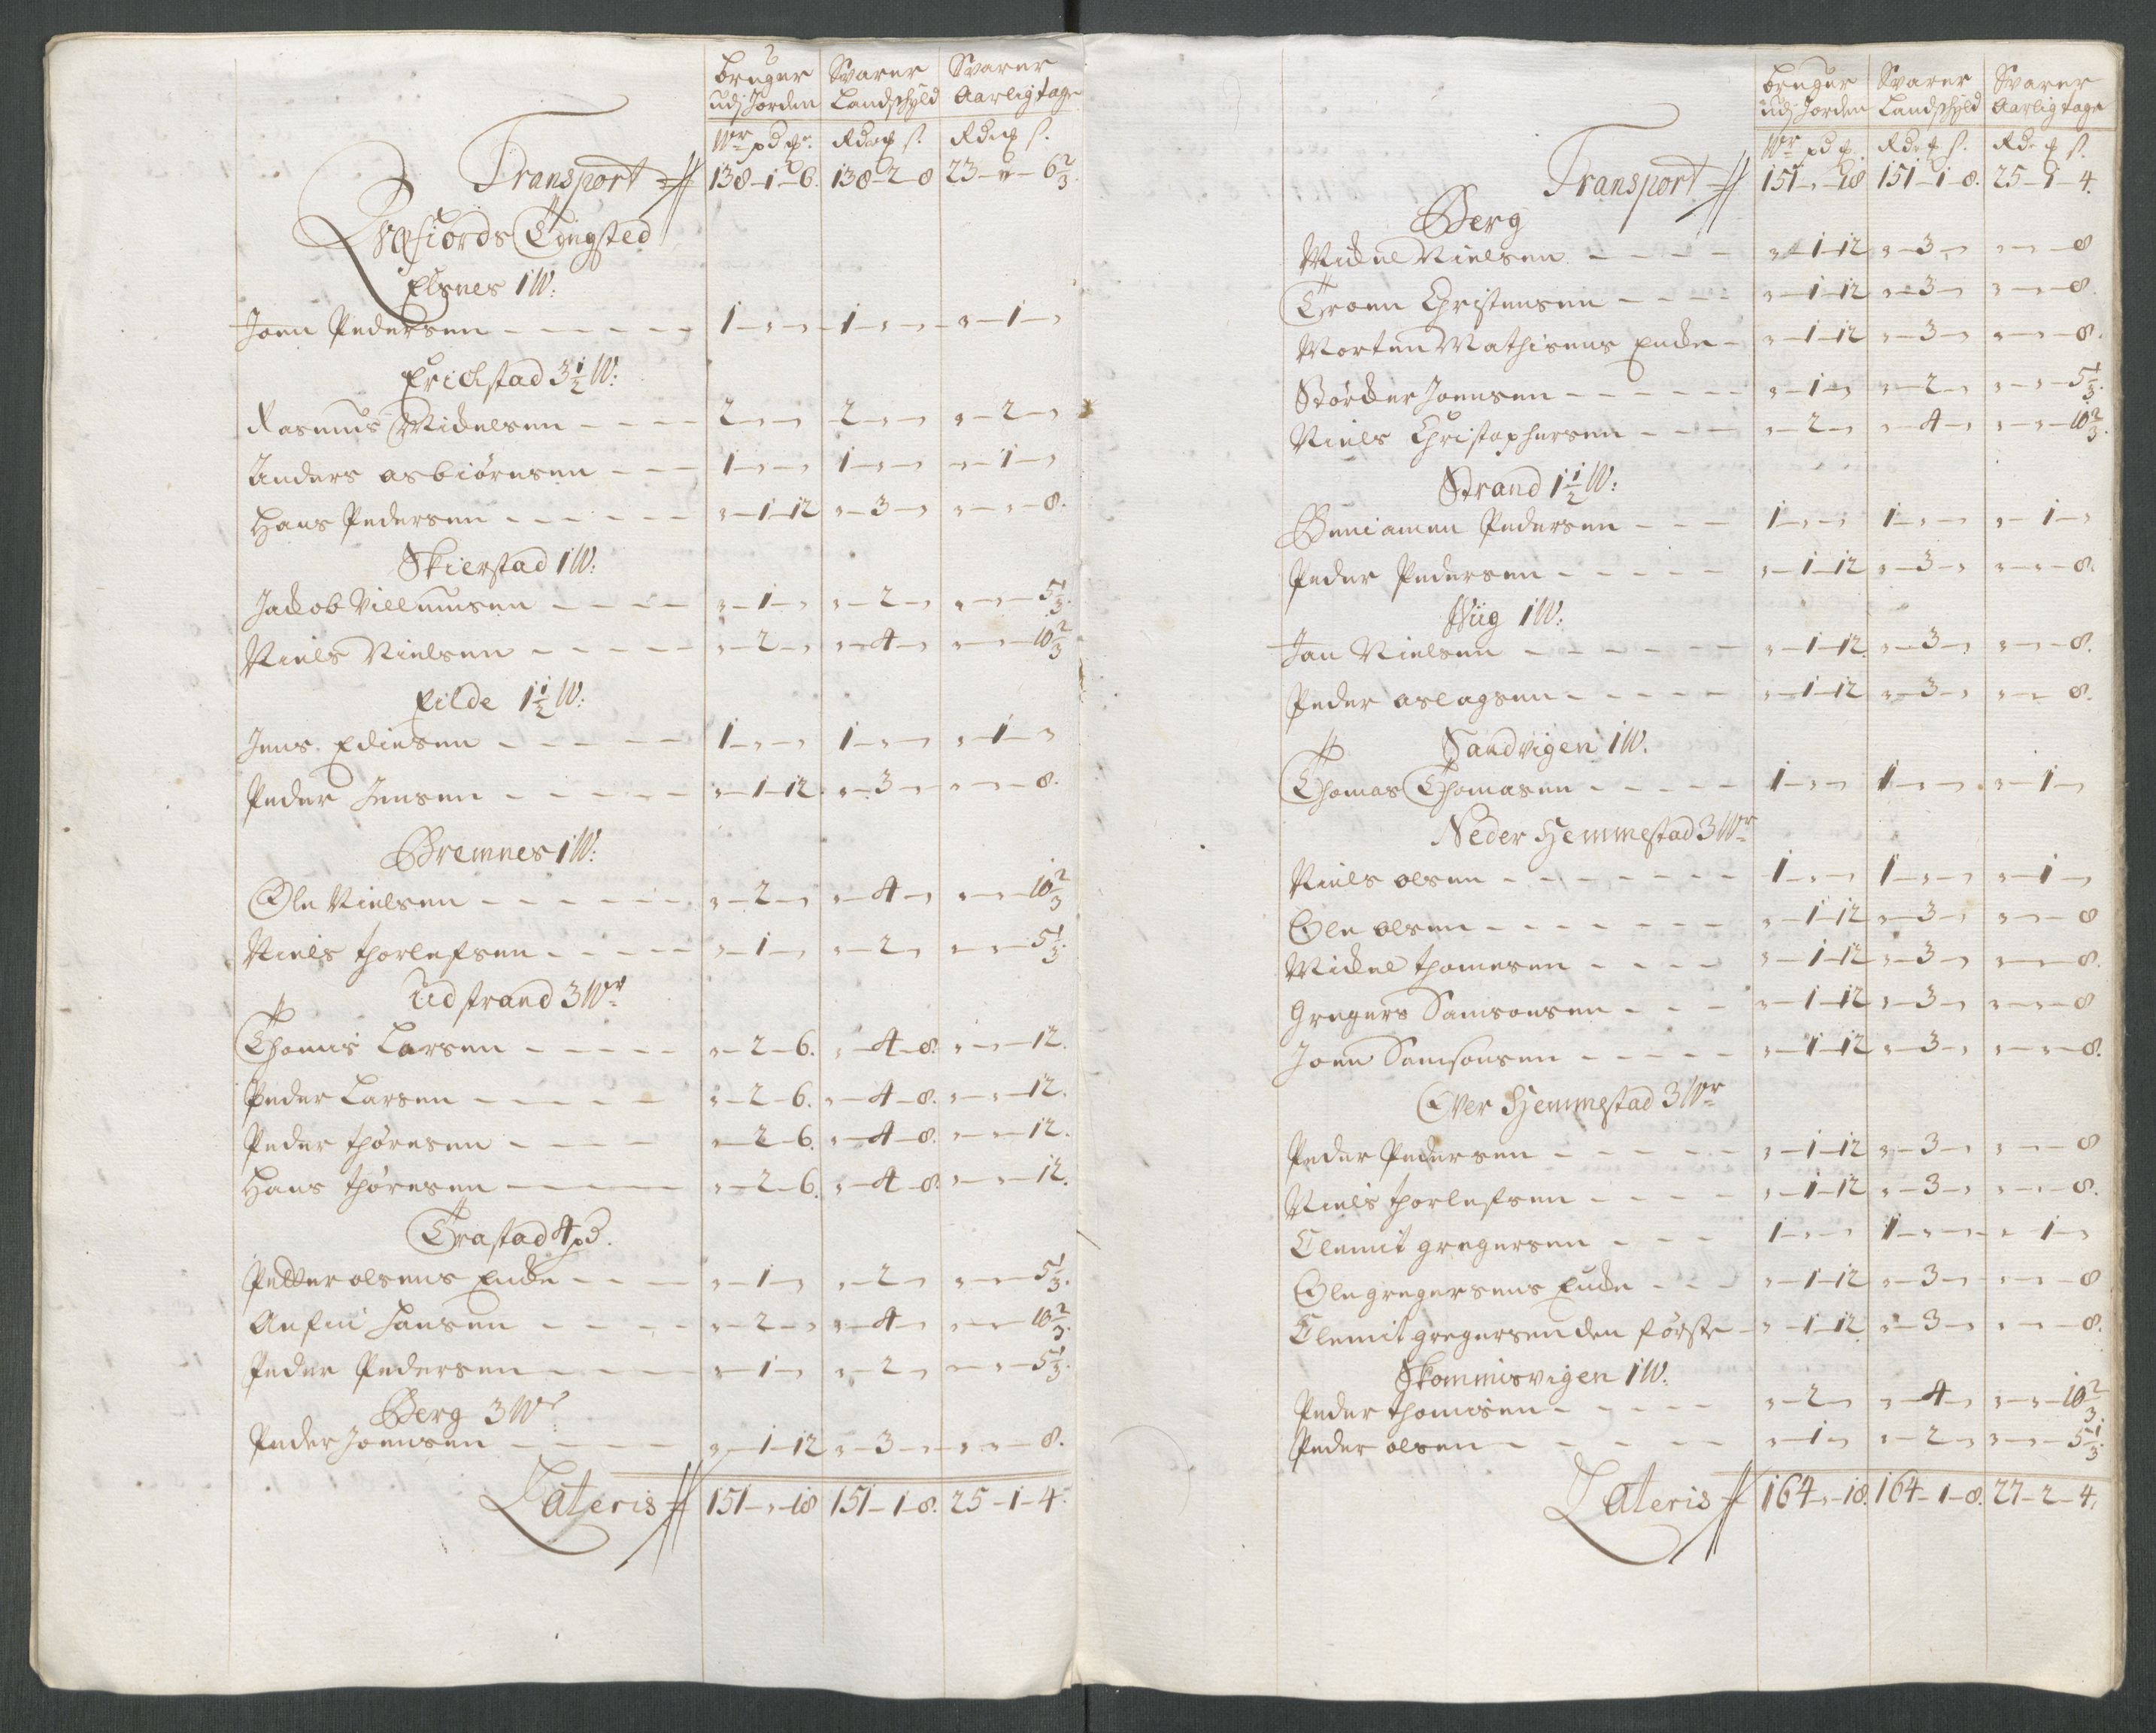 bruger Svarer Svarer
udj Jorden Landschyld Aarlig tage
Wr pd  Rd  s. Rd  s.
Transport 138-1-6. 138-2-8 23-"-6 2/3.
Qvæfiords Tingsted
Elsnes 1 W:
Joen Pedersen - - - - - 1-,-, 1-,-, ,-1-,
Erichstad 3 1/2 W:
Rasmus Michelsen - - - - 2-,-, 2-,-, ,-2-,
Anders asbiørnsen - - - 1-,-, 1-,-, ,-1-,
Hans Pedersen - - - - - ,-1-12 ,-3-, ,-,-8.
Skierstad 1 W:
Jackob Villumsen - - - - ,-1-, ,-2-, ,-,-5 1/3.
Niels Nielsen - - - - - ,-2-, ,-4-, ,-,-10 2/3
Eilde 1 1/2 W:
Jens Edisen - - - - - 1-,-, 1-,-, ,-1-,
Peder Jensen - - - - - ,-1-12. ,-3-, ,-,-8.
Bremnes 1 W:
Ole Nielsen - - - - - - ,-2-, ,-4-, ,-,-10 2/3
Niels thorlefsen - - - - ,-1-, ,-2-, ,-,-5 1/3.
Udstrand 3 Wr
Thomis Larsen - - - - - ,-2-6. ,-4-8. ,-,-12.
Peder Larsen - - - - - ,-2-6. ,-4-8. ,-,-12.
Peder thøresen - - - - ,-2-6. ,-4-8. ,-,-12.
Hans thøresen - - - - ,-2-6. ,-4-8. ,-,-12.
Trastad 4 pd.
Petter olsens Encke - - - ,-1-, ,-2-, ,-,-5 1/3.
Anfin Hansen - - - - - ,-2-, ,-4-, ,-,-10 2/3.
Peder Pedersen - - - - ,-1-, ,-2-, ,-,-5 1/3.
Berg 3 Wr
Peder Joensen - - - - - ,-1-12 ,-3-, ,-,-8.
Lateris 151-,-18 151-1-8. 25-1-4.
bruger Svarer Svarer
udj Jorden Landschyld Aarlig tage
Wr pd  Rd  s. Rd  s.
Transport 151-,-18 151-1-8. 25-1-4.
Berg
Mickel Nielsen - - - - ,-1-12 ,-3-, ,-,-8
Troen Christensen - - - - ,-1-12 ,-3-, ,-,-8.
Morten Mathisens Encke - ,-1-12 ,-3-, ,-,-8.
Størcker Joensen - - - - - ,-1-, ,-2-, ,-,-5 1/3.
Niels Christophersen - - - ,-2-, ,-4-, ,-,-10 2/3.
Strand 1 1/2 W:
Beniamen Pedersen - - - 1-,-, 1-,-, ,-1-,
Peder Pedersen - - - - - ,-1-12 ,-3-, ,-,-8.
Wiig 1 W:
Jan Nielsen - - - - - - ,-1-12. ,-3-, ,-,-8.
Peder aslagsen - - - - - ,-1-12 ,-3-, ,-,-8.
Sandvigen 1 W.
Thomas Thomasen - - - - - 1-,-, 1-,-, ,-1-,
Neder Hemmestad 3 Wr
Niels olsen - - - - - - - 1-,-, 1-,-, ,-1-,
Ole olsen - - - - - - - ,-1-12 ,-3-, ,-,-8
Mickel thomesen - - - - ,-1-12 ,-3-, ,-,-8.
Gregers Samsonsen - - - ,-1-12 ,-3-, ,-,-8
Joen Samsonsen - - - - - ,-1-12 ,-3-, ,-,-8.
Over Hemmestad 3 Wr
Peder Pedersen - - - - - ,-1-12 ,-3-, ,-,-8
Niels thorlefsen - - - - ,-1-12 ,-3-, ,-,-8.
Clemit gregersen - - - 1-,-, 1-,-, ,-1-,
Ole gregersens Encke - - - ,-1-12 ,-3-, ,-,-8
Clemit gregersen den første - ,-1-12 ,-3-, ,-,-8.
Skommisvigen 1 W.
Peder thomisen - - - - - ,-2-, ,-4-, ,-,-10 2/3.
Peder olsen - - - - - - ,-1-, ,-2-, ,-,-5 1/3.
Lateris 164-,-18. 164-1-8. 27-2-4.